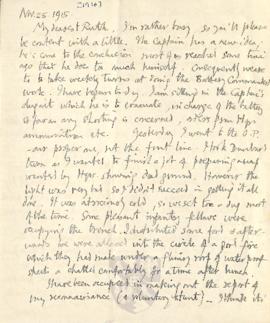 211243
Nov. 25. 1915.
My dearest Ruth, I'm rather busy, so you'll please
be content with a little. The Captain has a new idea;
he's come to the conclusion most of you reached some time
ago that he does too much himself. Consequently we are
to take weekly turns at doing the Battery Commander's
work. I have begun to-day. I am sitting in the Captain's
dugout which he is to evacuate, in charge of the battery
so far as any shooting is concerned, orders from Hqrs
ammunition etc. Yesterday I went to the O.P.
- our proper one, not the front line. I took
down as I wanted to finish a job of preparing
wanted by Hqrs showing dead ground. However the
light was very bad so I didn't succeed in getting it all
done. It was atrociously cold, so we sat too - day most
of the time. Some pleasant infantry fellows were
occupying the trench. I distributed some food & after-
wards we were allowed into the circle of a good fire
which they had made under a flimsy roof of water proof
sheets & chatted comfortably for a time after lunch.
I have been occupied in making out the report of
my reconnaissance (a voluntary stunt) - I think it's